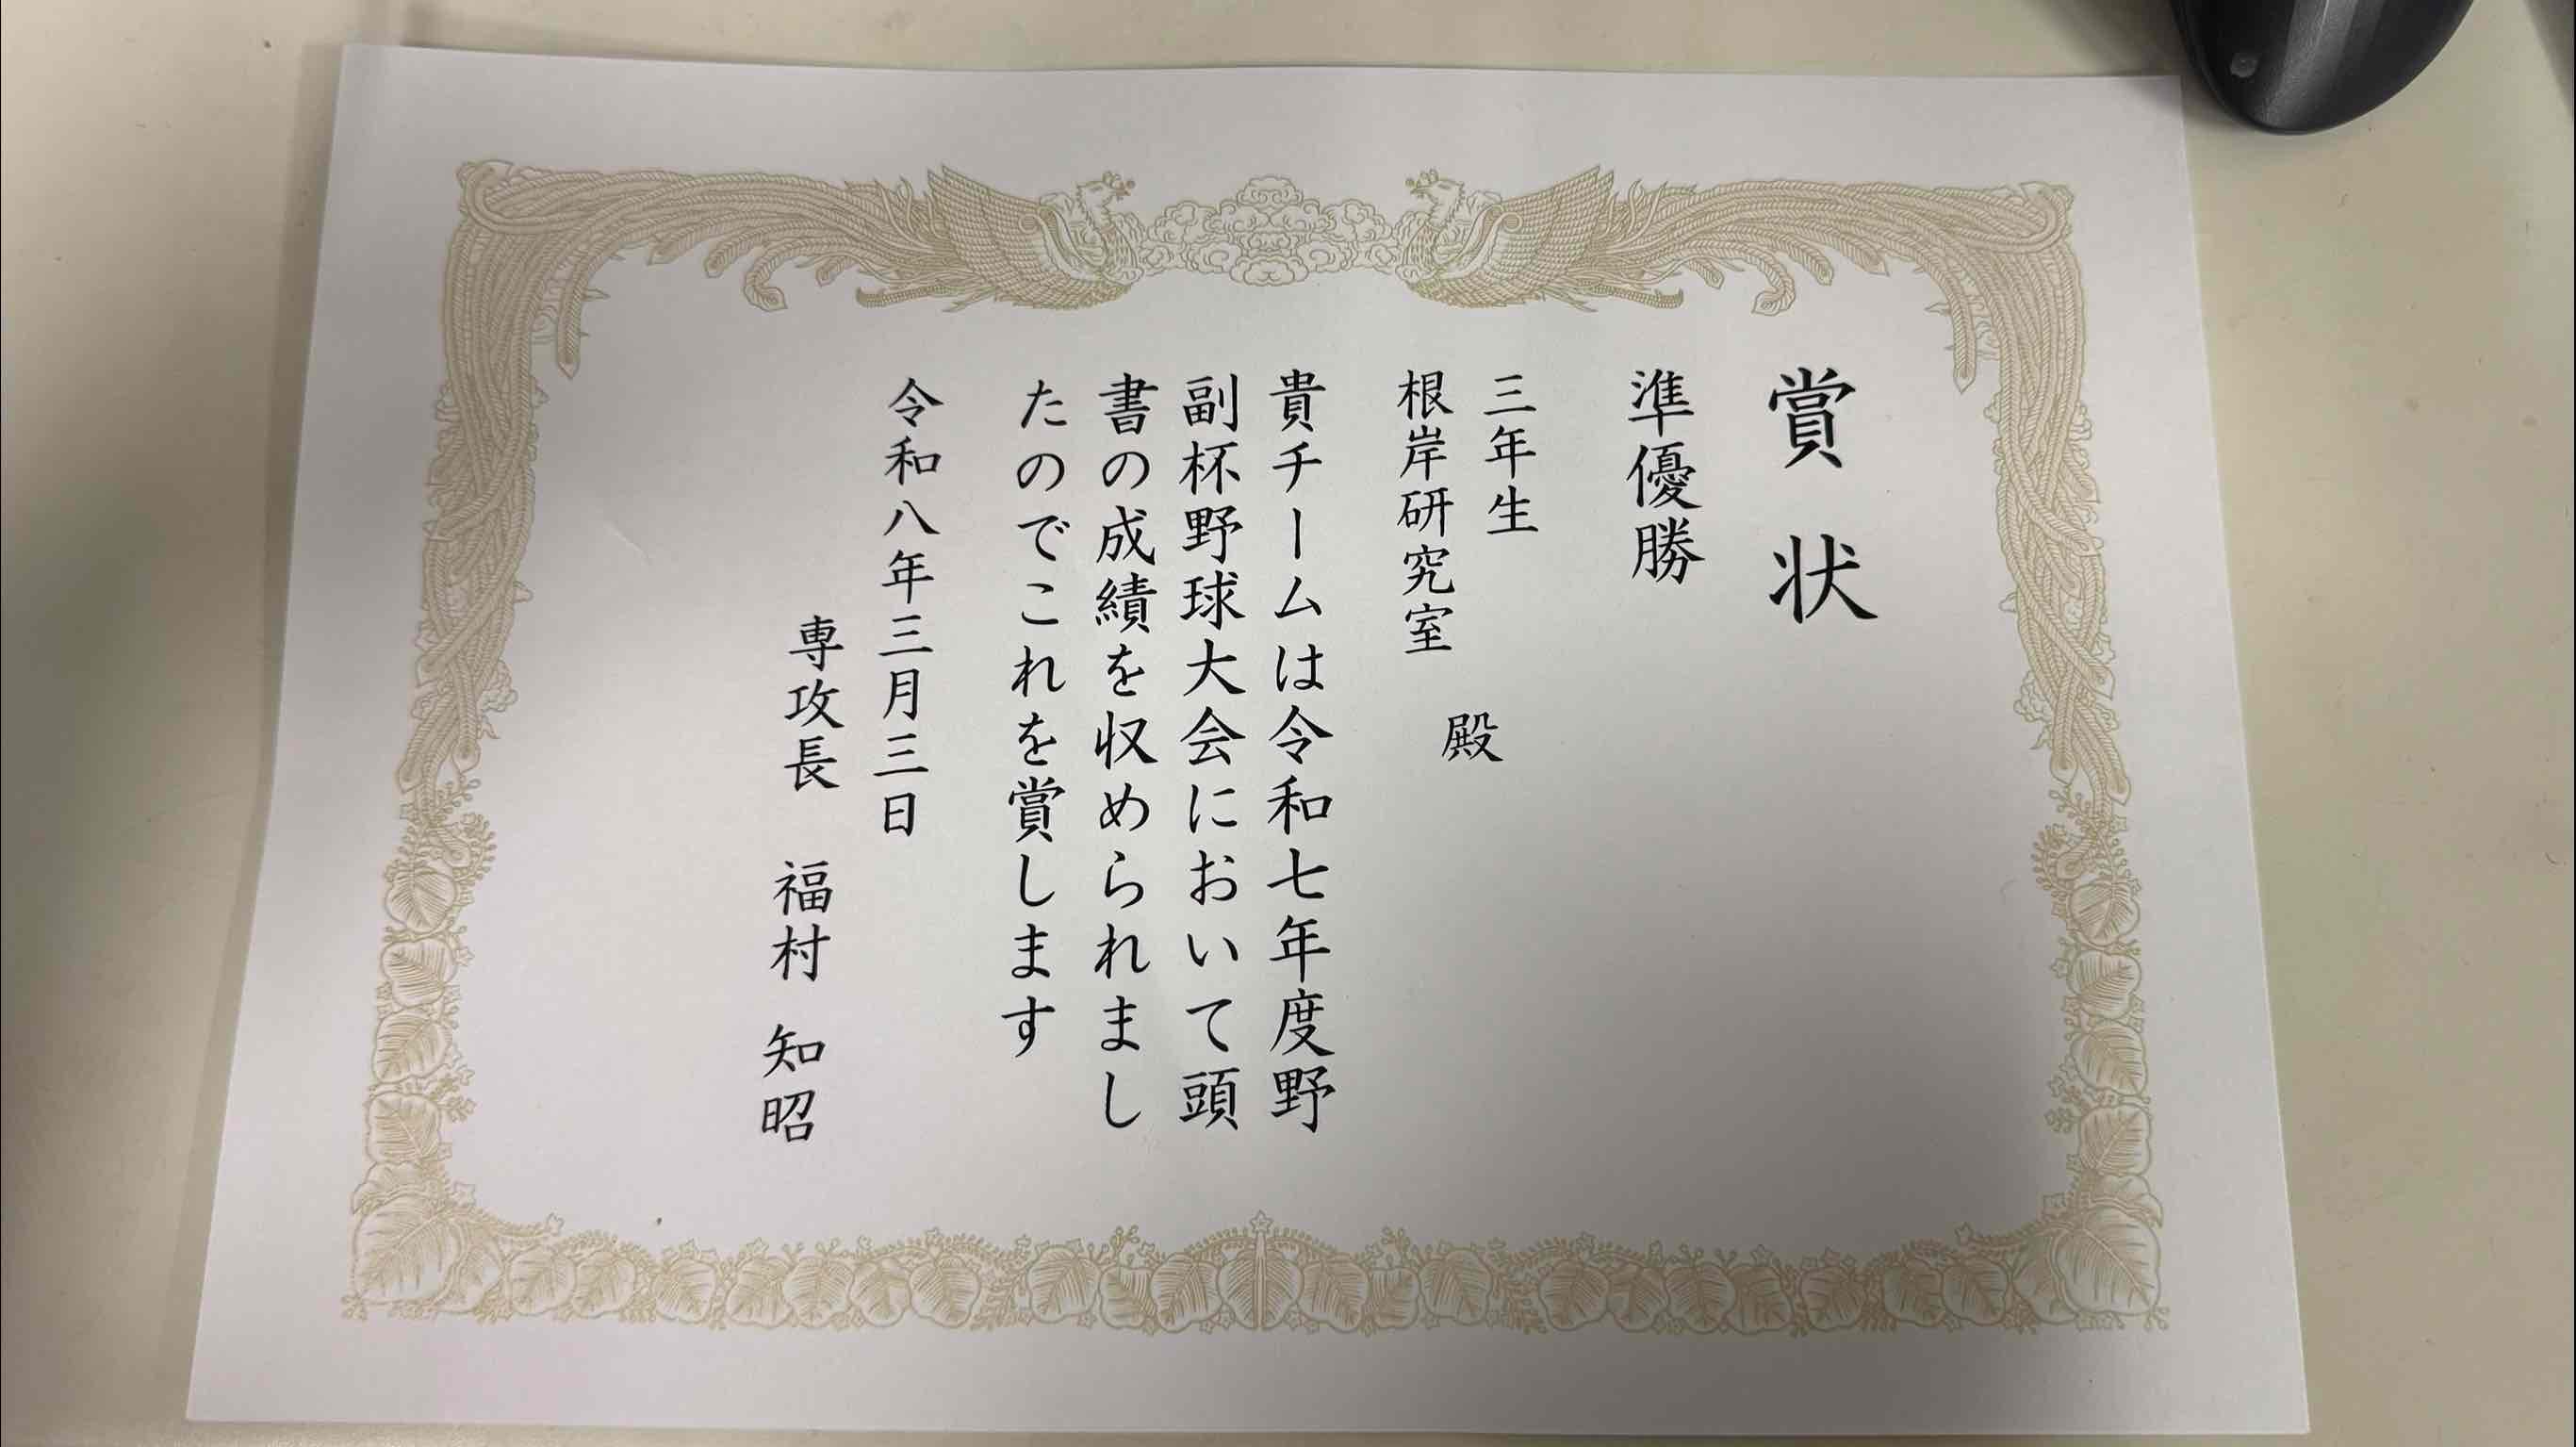 賞状
準優勝
三年生
根岸研究室
殿
貴チームは令和七年度野
副杯野球大会において頭
書の成績を収められまし
たのでこれを賞します
令和八年三月三日
専攻長 福村 知昭